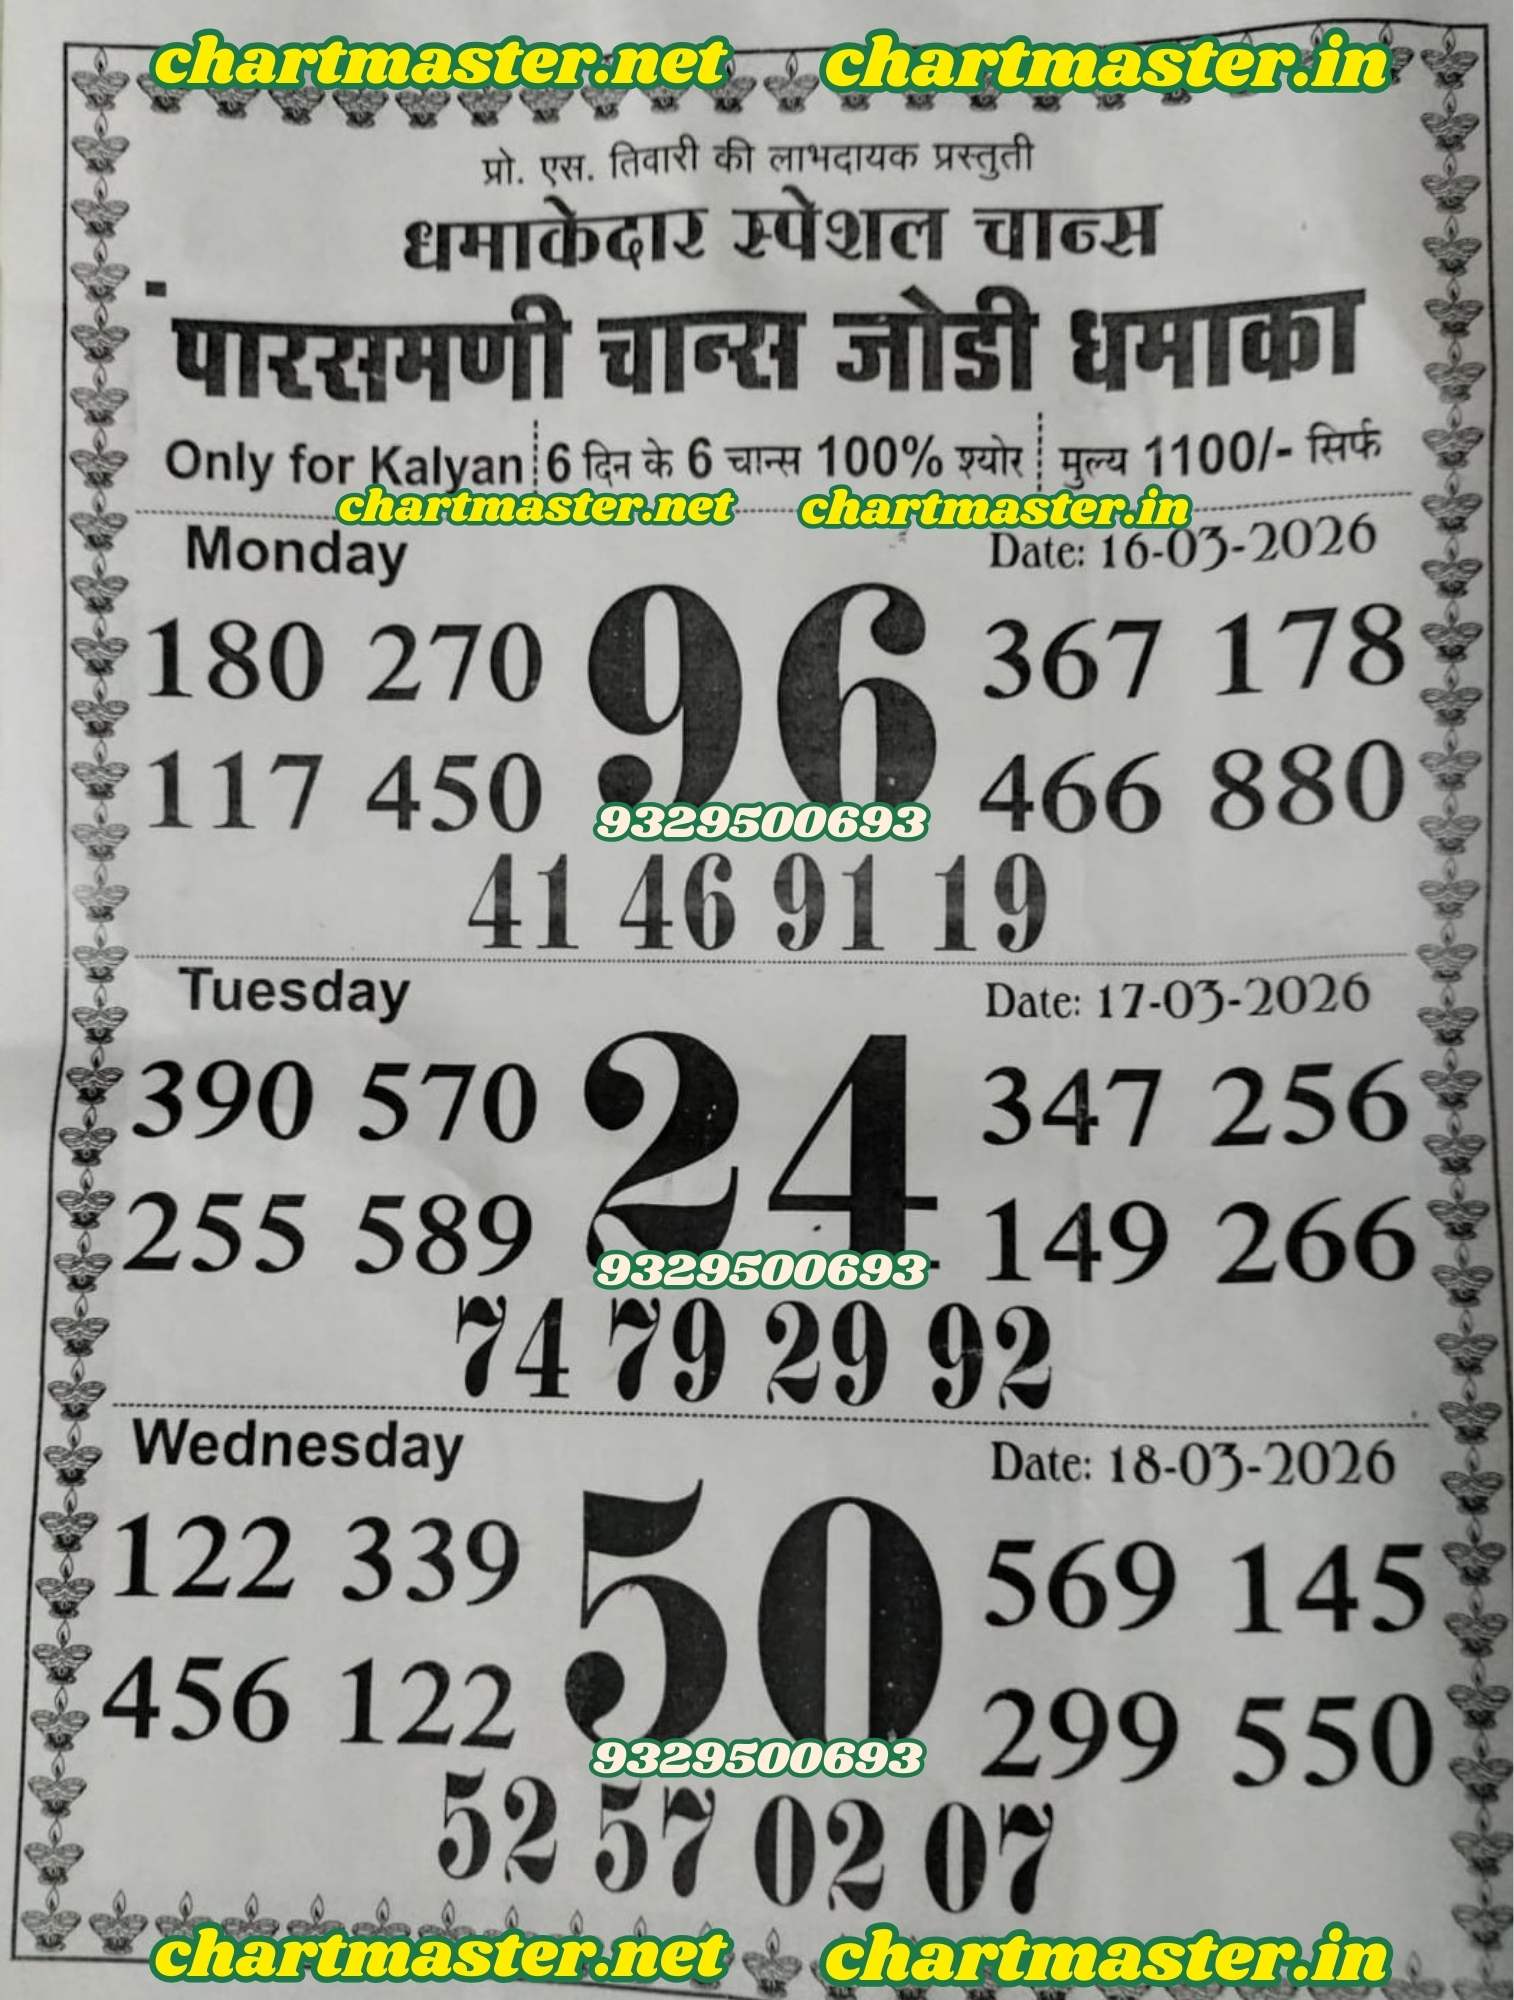 chartmaster.net chartmaster.in
प्रो. एस. तिवारी की लाभदायक प्रस्तुती
धमाकेदार स्पेशल चान्स
पारसमणी चान्स जोडी धमाका
Only for Kalyan 6 दिन के 6 चान्स 100% श्योर मुल्य 1100/- सिर्फ
chartmaster.net chartmaster.in
Monday Date: 16-03-2026
180 270 96 367 178
117 450 466 880
9329500693
41 46 91 19
Tuesday Date: 17-03-2026
390 570 24 347 256
255 589 149 266
9329500693
74 79 29 92
Wednesday Date: 18-03-2026
122 339 50 569 145
456 122 299 550
9329500693
52 57 02 07
chartmaster.net chartmaster.in